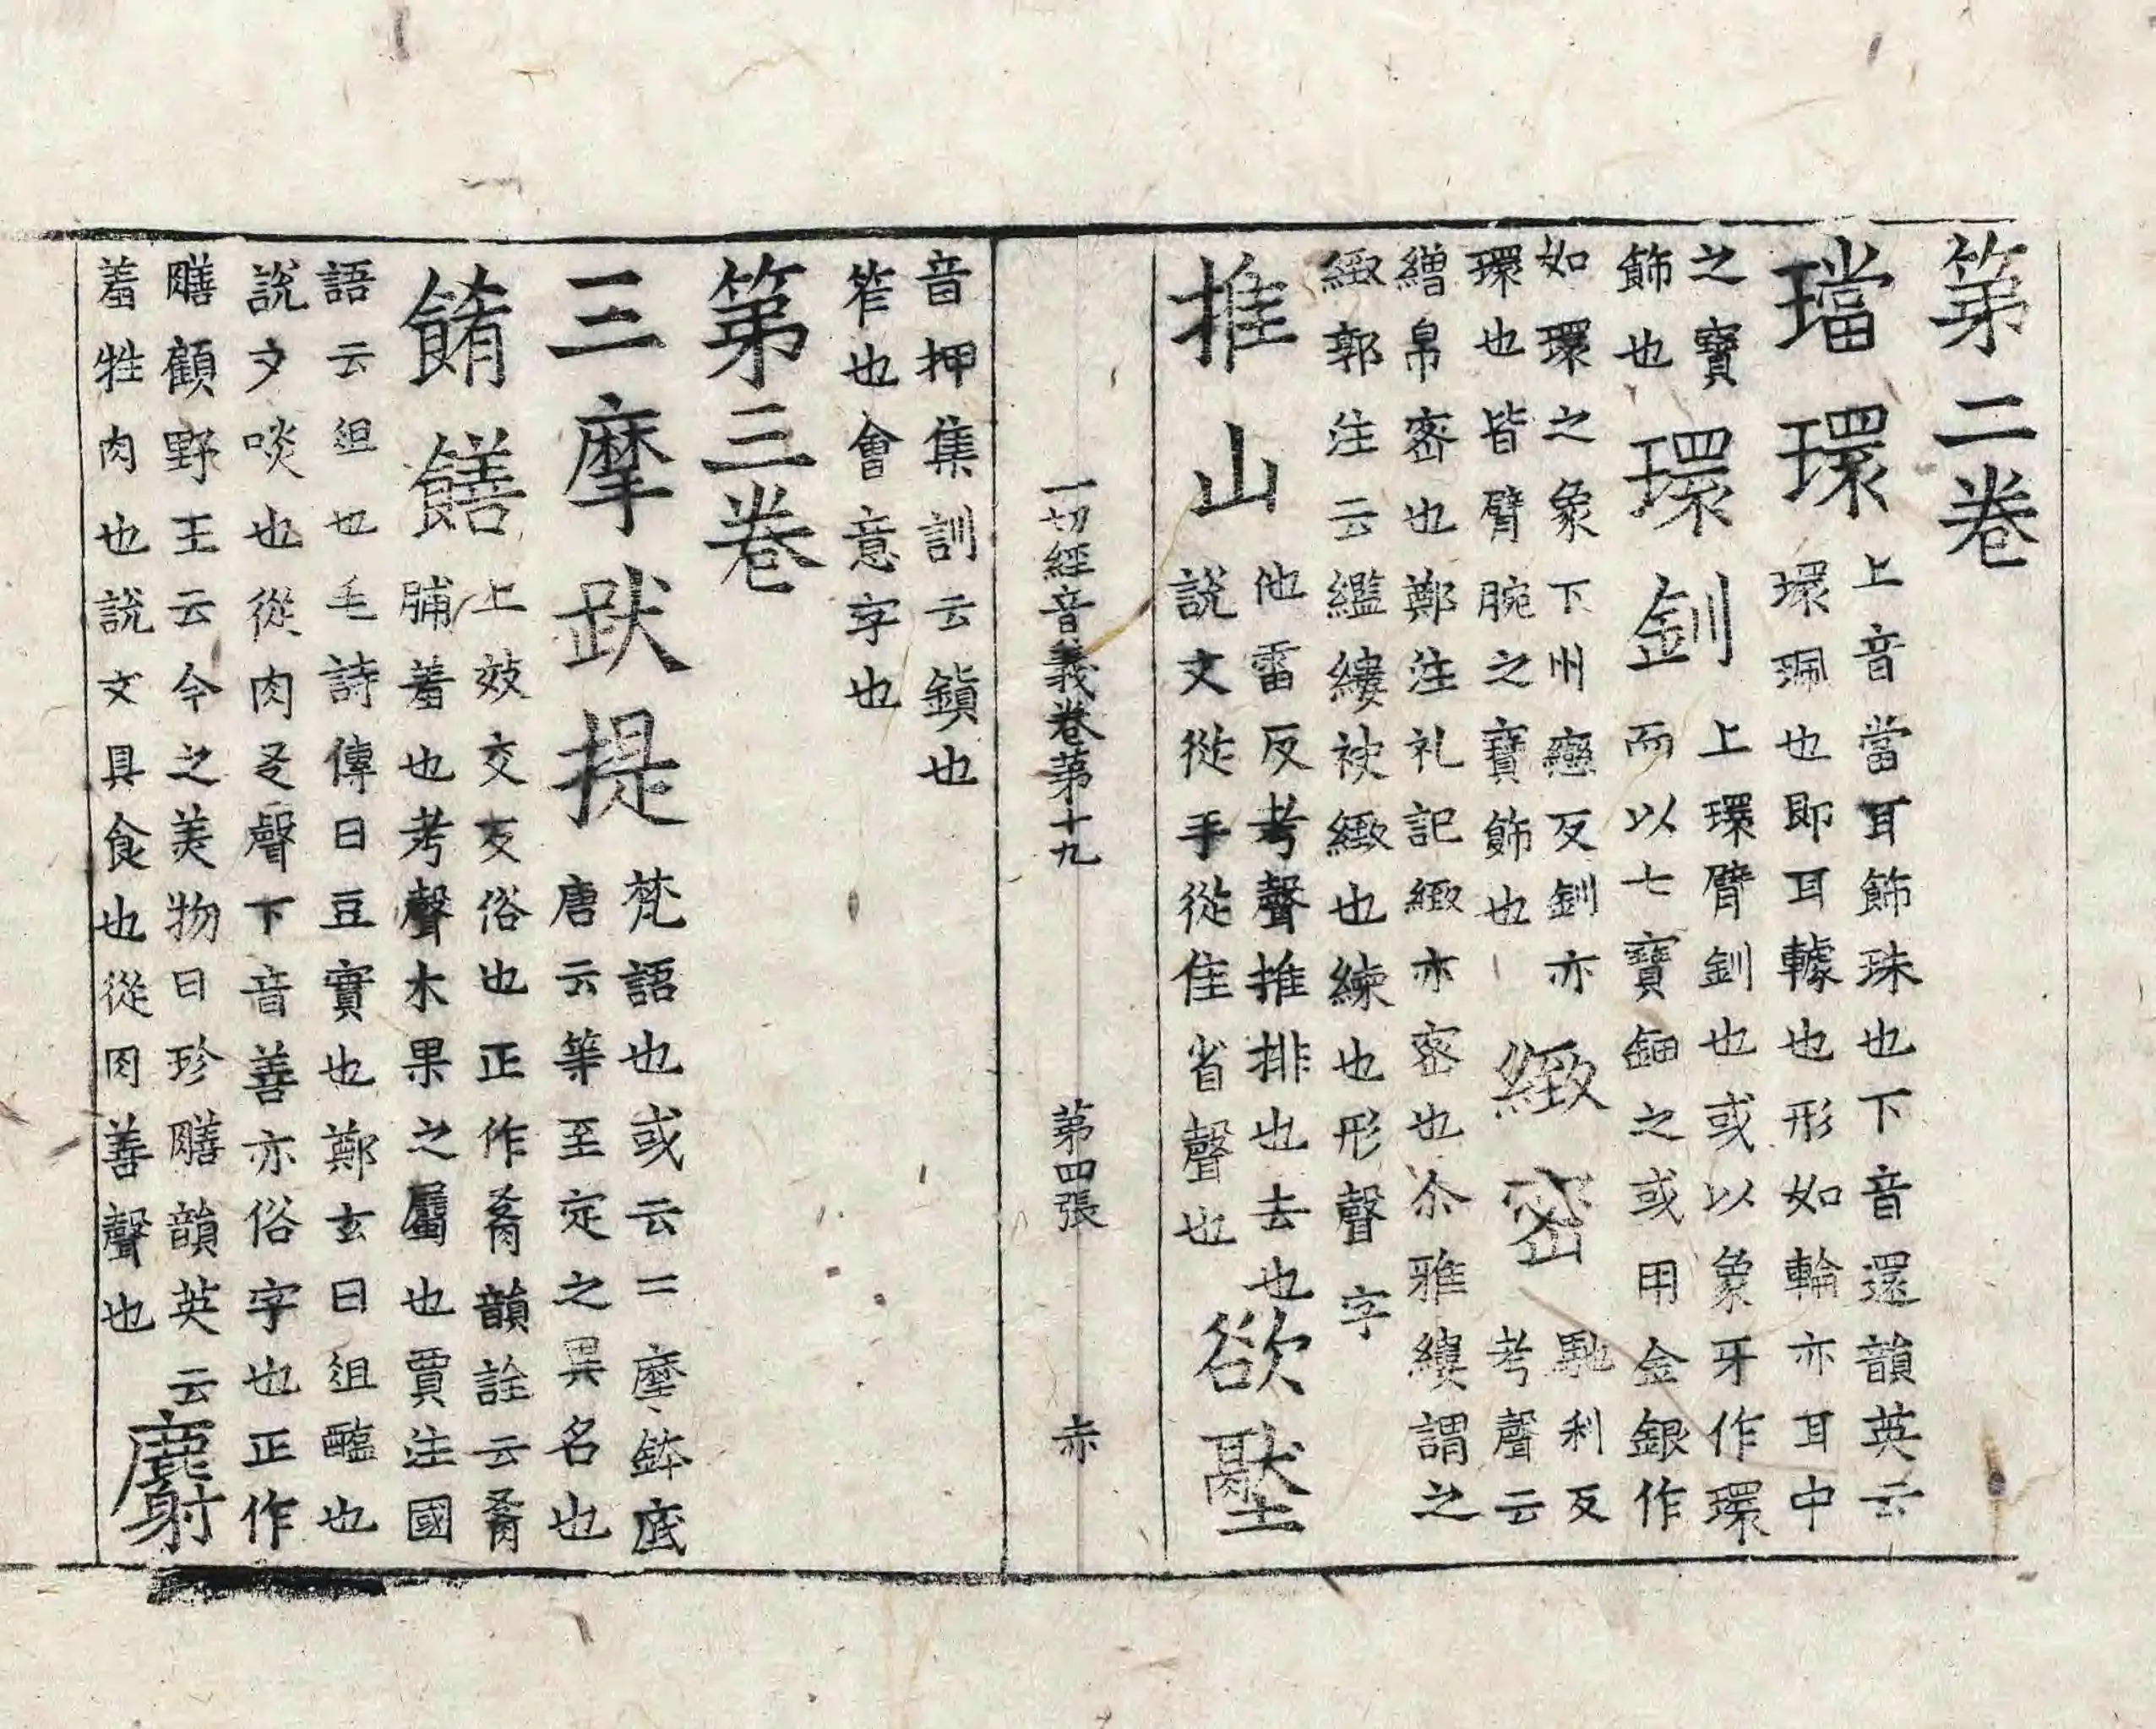 第二卷
璫環 上音當耳飾珠也下音還韻英云
環珮也即耳轅也形如輪亦耳中
之寶
飾也 環釧 上環臂釧也或以象牙作環
而以七寶鈿之或用金銀作
如環之象下州戀反釧亦
環也皆臂腕之寶飾也 緻密 馳利反
考聲云
繒帛密也鄭注礼記緻亦密也尒雅縷謂之
緻郭注云繿縷袂緻也練也形聲字
推山 他雷反考聲推排也去也
說文從手從隹省聲也 欲壓
一切經音義卷第十九 第四張 赤
音押集訓云鎮也
笮也會意字也
第三卷
三摩跋提 梵語也或云二摩鉢底
唐云等至定之異名也
餚饍 上效交反俗也正作肴韻詮云肴
脯羞也考聲木果之屬也賈注國
語云俎也毛詩傳曰豆實也鄭玄曰俎醢也
說文啖也從肉爻聲下音善亦俗字也正作
膳顧野王云今之美物曰珍膳韻英云
羞牲肉也說文具食也從肉善聲也 麝